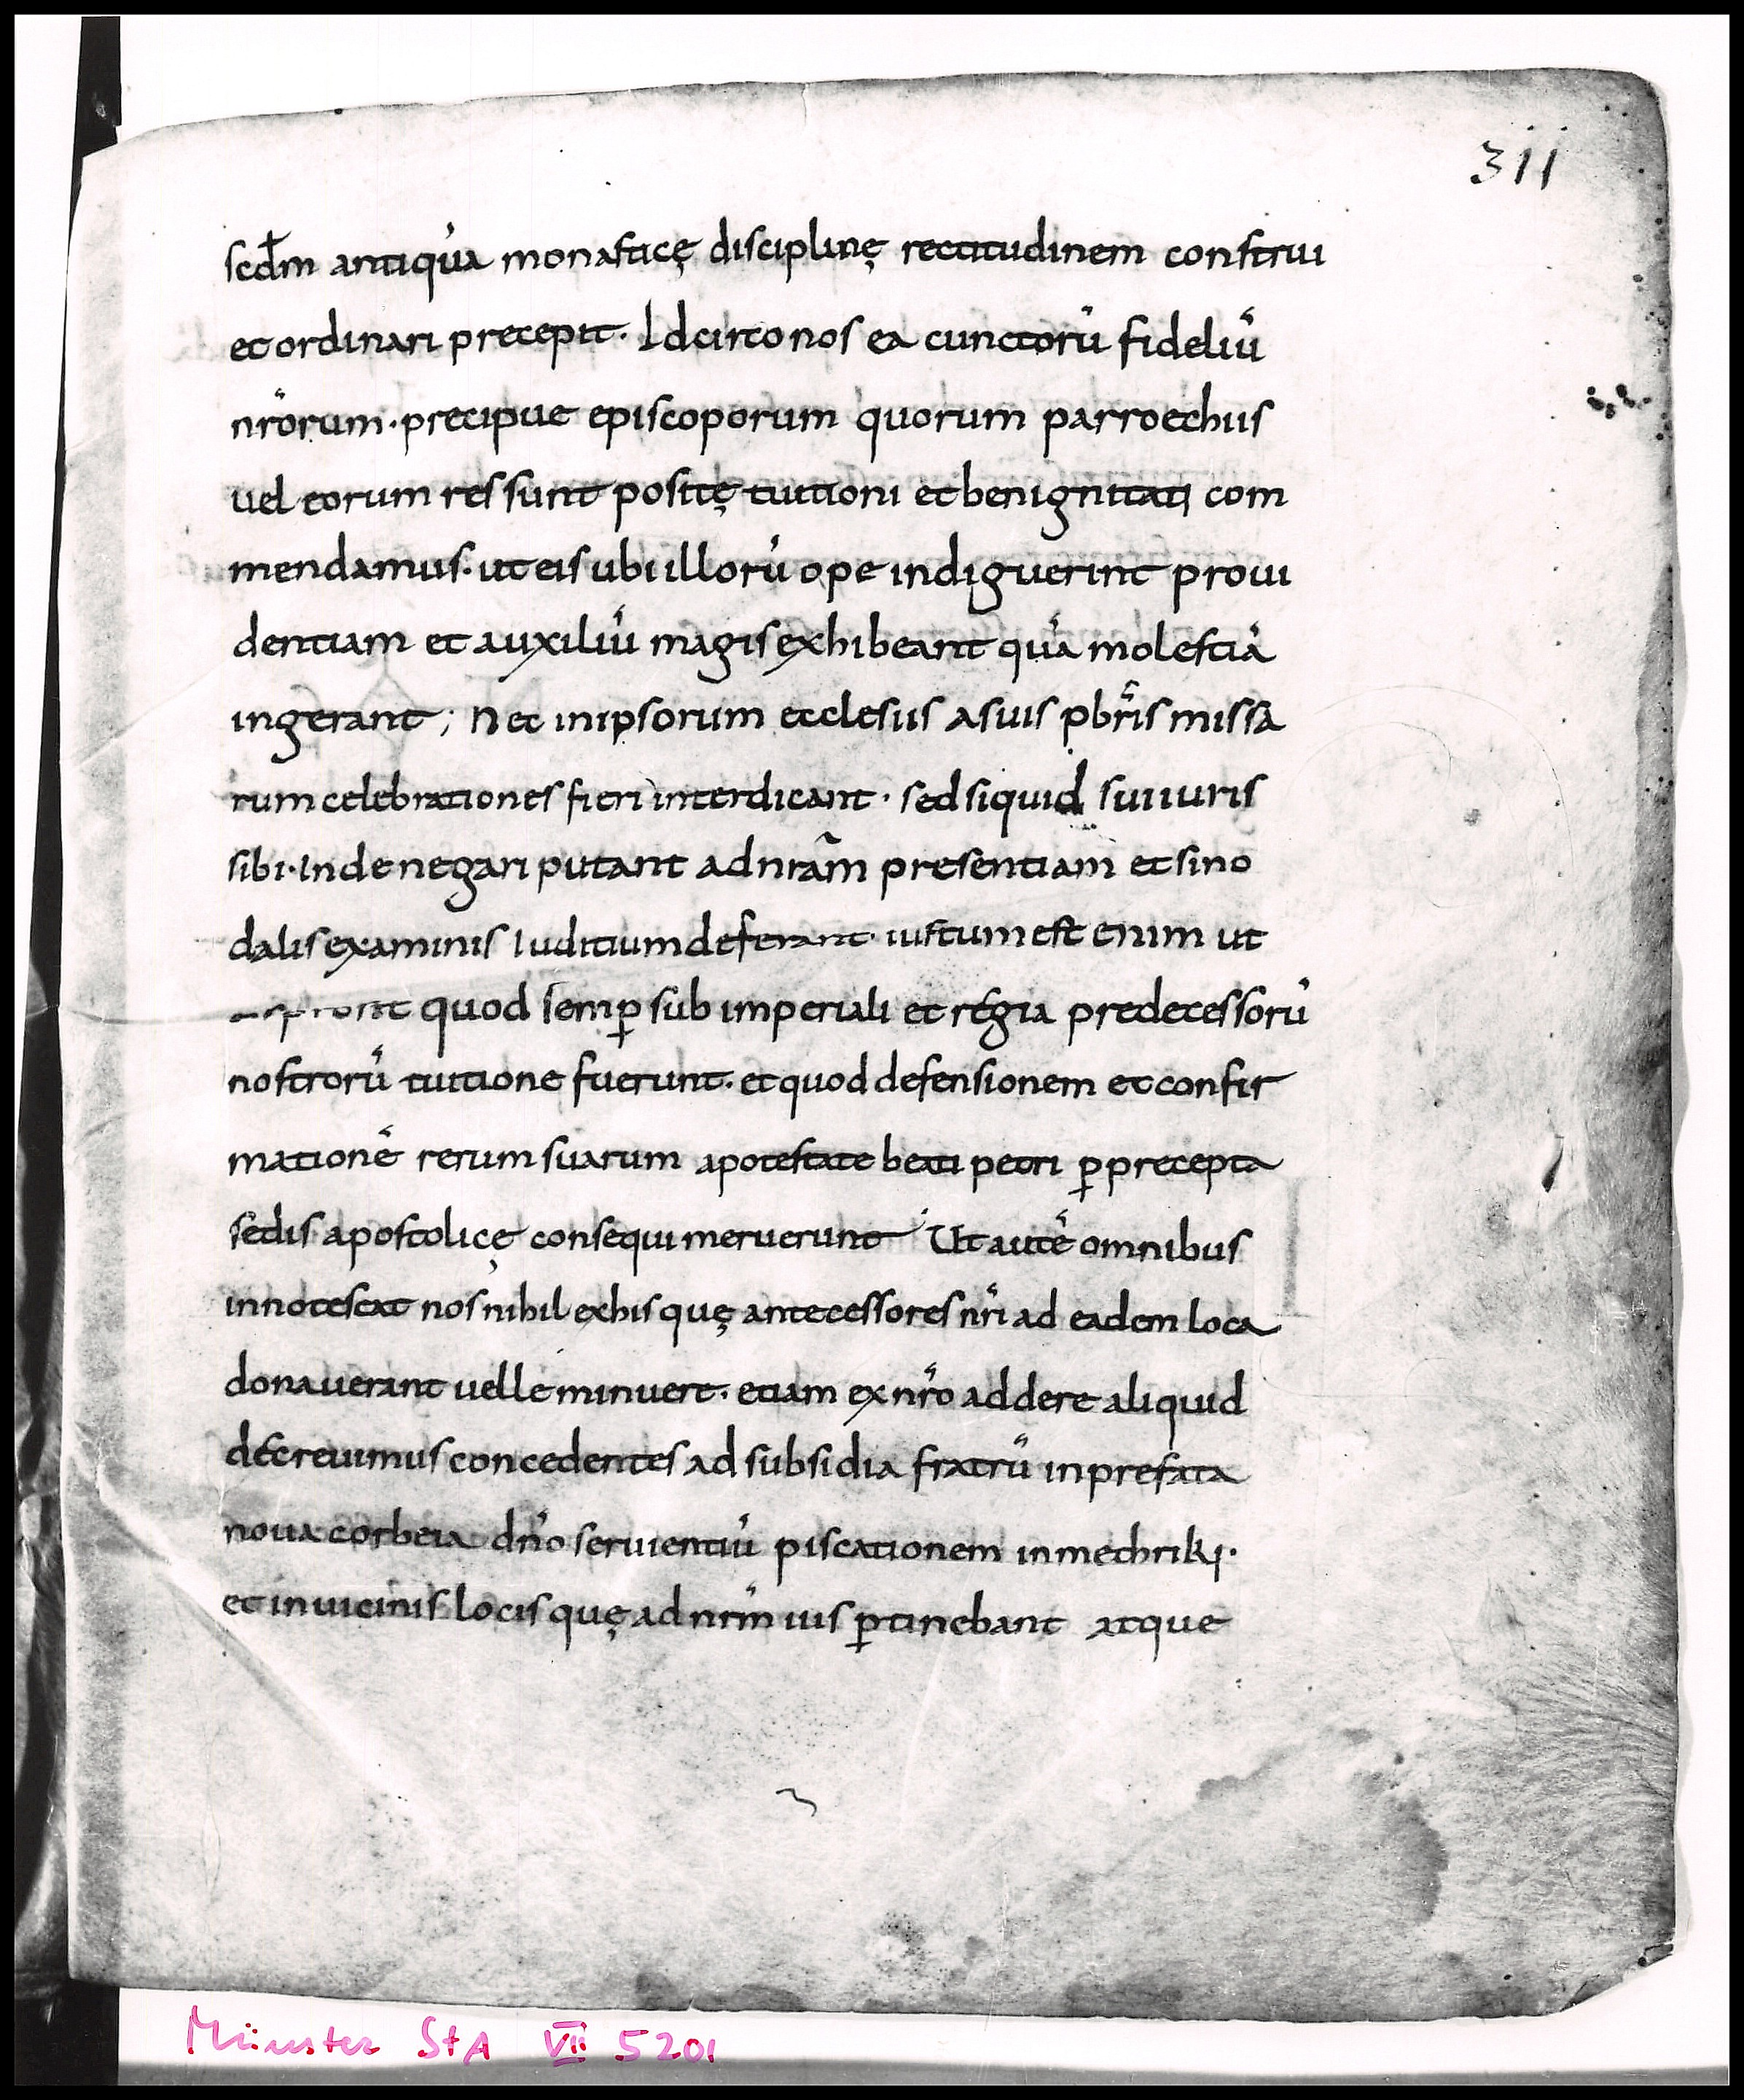 311
scd̄m antiquā monasticę disciplinę rectitudinem construi
et ordinari precepit. Idcirco nos ea cunctorū fideliū
nr̄orum. precipue episcoporum quorum parroechiis
uel eorum res sunt positę tuitioni et benignitati com
mendamus. ut eis ubi illorū ope indiguerint proui
dentiam et auxiliū magis exhibeant quā molestiā
ingerant; Nec in ipsorum ecclesiis a suis pbr̄is missa
rum celebrationes fieri interdicant. sed siquid sui iuris
sibi. Inde negari putant ad nrām presentiam et sino
dalis examinis Iuditium deferant. iustum est enim ut
quod semp̱ sub imperiali et regia predecessorū
nostrorū tuitione fuerunt. et quod defensionem et confir
mationē rerum suarum a potestate beati petri p̱ precepta
sedis apostolicę consequi meruerunt. Ut autē omnibus
innotescat nos nihil ex his quę antecessores nr̄i ad eadem loca
donauerant uelle minuere. etiam ex nr̄o addere aliquid
decreuimus concedentes ad subsidia fratrū in prefata
noua corbeia dn̄o seruientiū piscationem in methriki.
et in uicinis locis quę ad nrm̄ ius p̱tinebant atque
Münster StA VII 5201